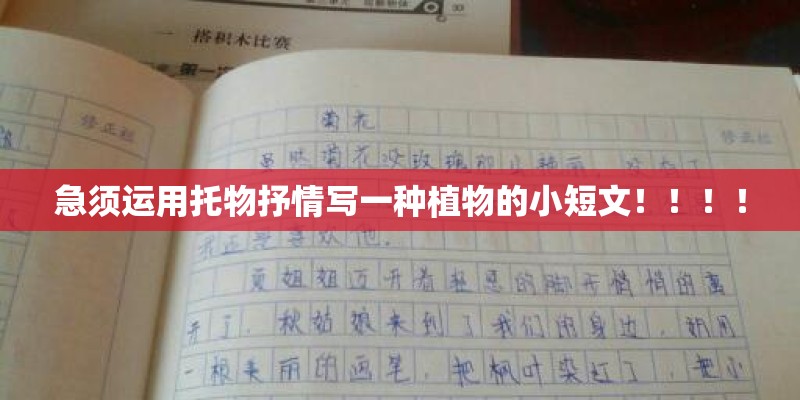 一 搭积木比赛
第一次
修正栏
修正栏
菊花
虽然菊花没玫瑰那么艳丽，没有
急须运用托物抒情写一种植物的小短文！！！！
夏姐姐迈开着轻思的脚开悄悄的离
开了，秋姑娘来到了我们的身边，她用
一根美丽的画笔，把枫叶染红了，把小